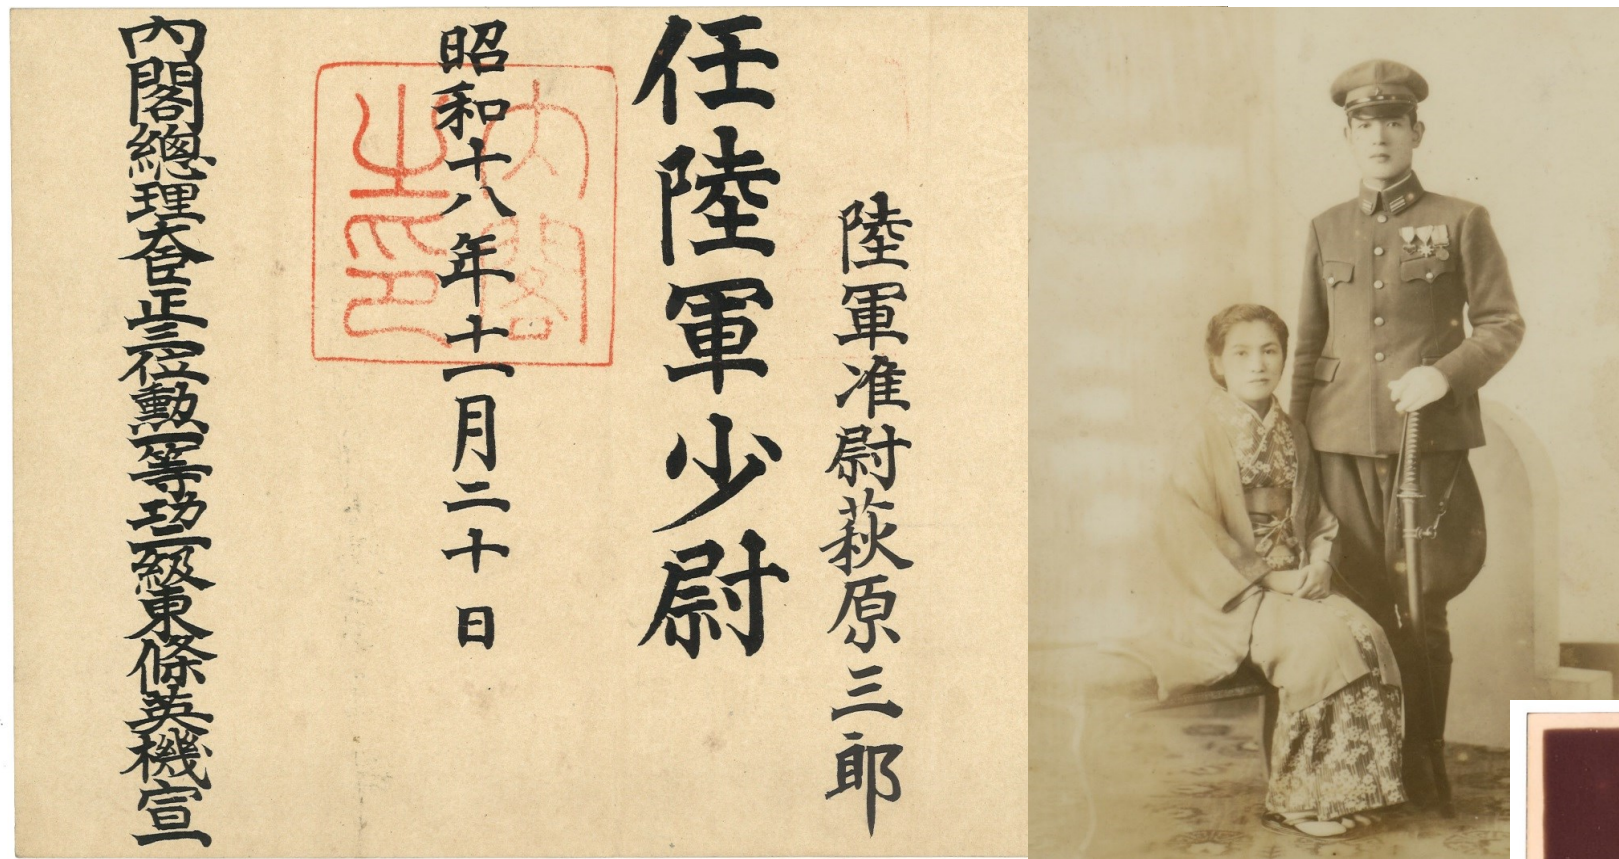 陸軍准尉萩原三郎
任陸軍少尉
昭和十八年十一月二十日
內閣之印
內閣總理大臣正三位勳一等功二級東條英機宣